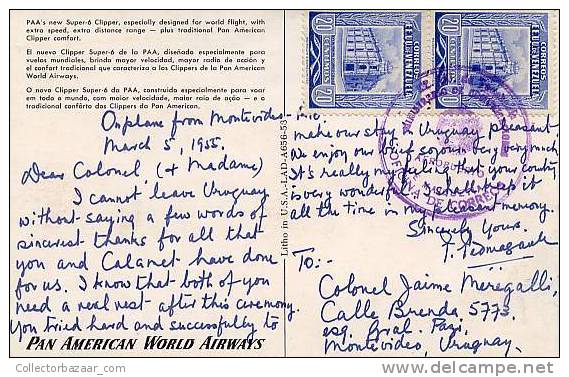 PAA's new Super-6 Clipper, especially designed for world flight, with
extra speed, extra distance range — plus traditional Pan American
Clipper comfort.
El nuevo Clipper Super-6 de la PAA, diseñado especialmente para
vuelos mundiales, brinda mayor velocidad, mayor radio de acción y
el confort tradicional que caracteriza a los Clippers de la Pan American
World Airways.
O novo Clipper Super-6 da PAA, construido especialmente para voar
em todo o mundo, com maior velocidade, maior raio de ação — e o
tradicional confôrto dos Clippers da Pan American.
On plane from Montevideo - Rio.
March 5, 1955.
Dear Colonel, (+ Madame)
I cannot leave Uruguay
without saying a few words of
sincerest thanks for all that
you and have done
for us. I know that both of you
need a real rest after this ceremony.
You tried hard and successfully to
PAN AMERICAN WORLD AIRWAYS
Litho in U.S.A.-LAD-A656-53
20
CENTIMOS
CORREOS
E.E.U.U. VENEZUELA
20
CENTIMOS
CORREOS
E.E.U.U. VENEZUELA
make our stay in Uruguay pleasant.
We enjoy our brief sojourn very very much.
It's really my feeling that your country
is very wonderful. I shall keep it
all the time in my pleasant memory.
Sincerely Yours.
To:-
Colonel Jaime Meregalli,
Calle Brenda 5773.
esq. Gral. Paz,
Montevideo, Uruguay.
Collectorbazaar.com
delcampe.net